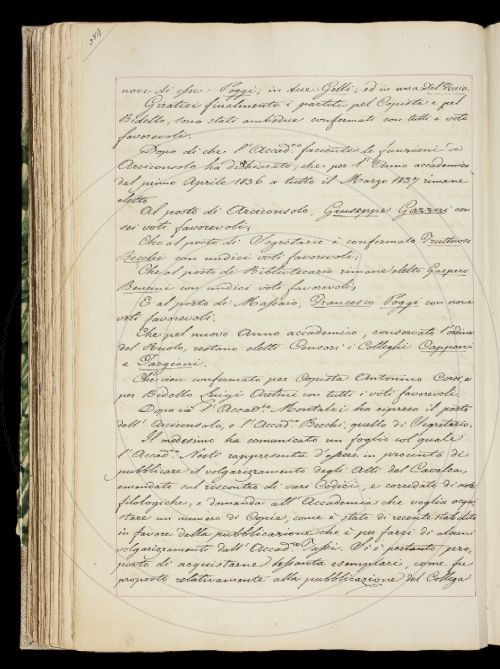 nove di esse: Poggi; in due: Gelli; ed in una Del Furia.
Giratisi finalmente i partiti pel Copista e pel
Bidello, sono stati ambedue confermati con tutti i voti
favorevoli.
Dopo di che l'Accad.co facente le funzioni di
Arciconsolo ha dichiarato, che per l'Anno accademico
dal primo Aprile 1836 a tutto il Marzo 1837 rimane
eletto
Al posto di Arciconsolo Giuseppe Gazzeri con
sei voti favorevoli;
Che al posto di Segretario è confermato Fruttuoso
Becchi con undici voti favorevoli;
Che al posto di Bibliotecario rimane eletto Gaspero
Bencini con undici voti favorevoli;
E al posto di Massaio, Francesco Poggi con nove
voti favorevoli.
Che pel nuovo Anno accademico, conservato l'ordine
del Ruolo, restano eletti Censori i Colleghi Capponi
e Targioni.
Che vien confermato per Copista Antonino Corsi, e
per Bidello Luigi Aretini con tutti i voti favorevoli.
Dopo ciò l'Accad.co Montalvi ha ripreso il posto
dell'Arciconsolo, e l'Accad.co Becchi quello di Segretario.
Il medesimo ha comunicato un foglio col quale
l'Accad.co Nesti rappresenta d'essere in procinto di
pubblicare il volgarizzamento degli Atti del Cavalca,
emendato sul riscontro di vari Codici, e corredato di note
filologiche, e domanda all'Accademia che voglia acqui
stare un numero di Copie, come è stato di recente stabilito
in favore della pubblicazione che è per farsi di alcuni
volgarizzamenti dall'Accad.co Tassi. Si è pertanto pro
posto di acquistarne sessanta esemplari, come fu
proposto relativamente alla pubblicazione del Collega